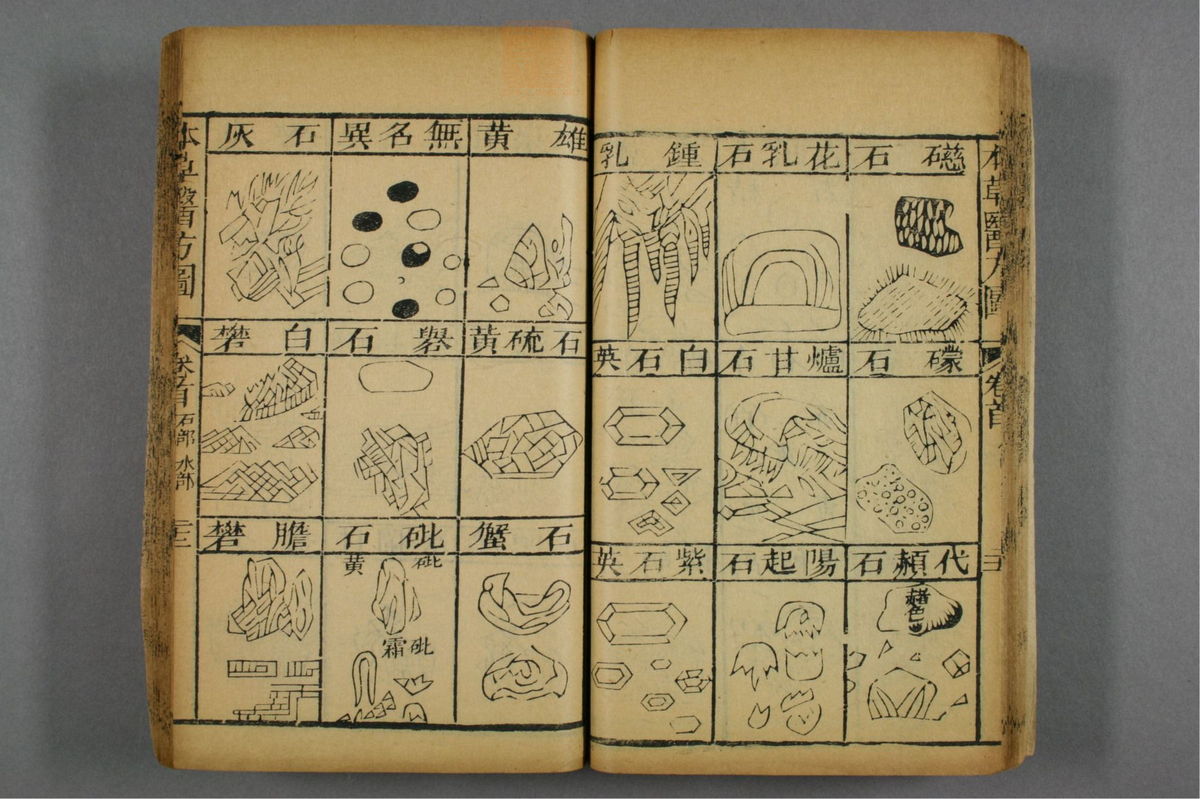 本草醫方圖
卷首
礠石
花乳石
鍾乳
礞石
爐甘石
白石英
代頳石
赭色
陽起石
紫石英
雄黄
無名異
石灰
石硫黄
礜石
白礬
石蟹
砒石
砒黄
砒霜
膽礬
本草醫方圖
卷首
石部
水部